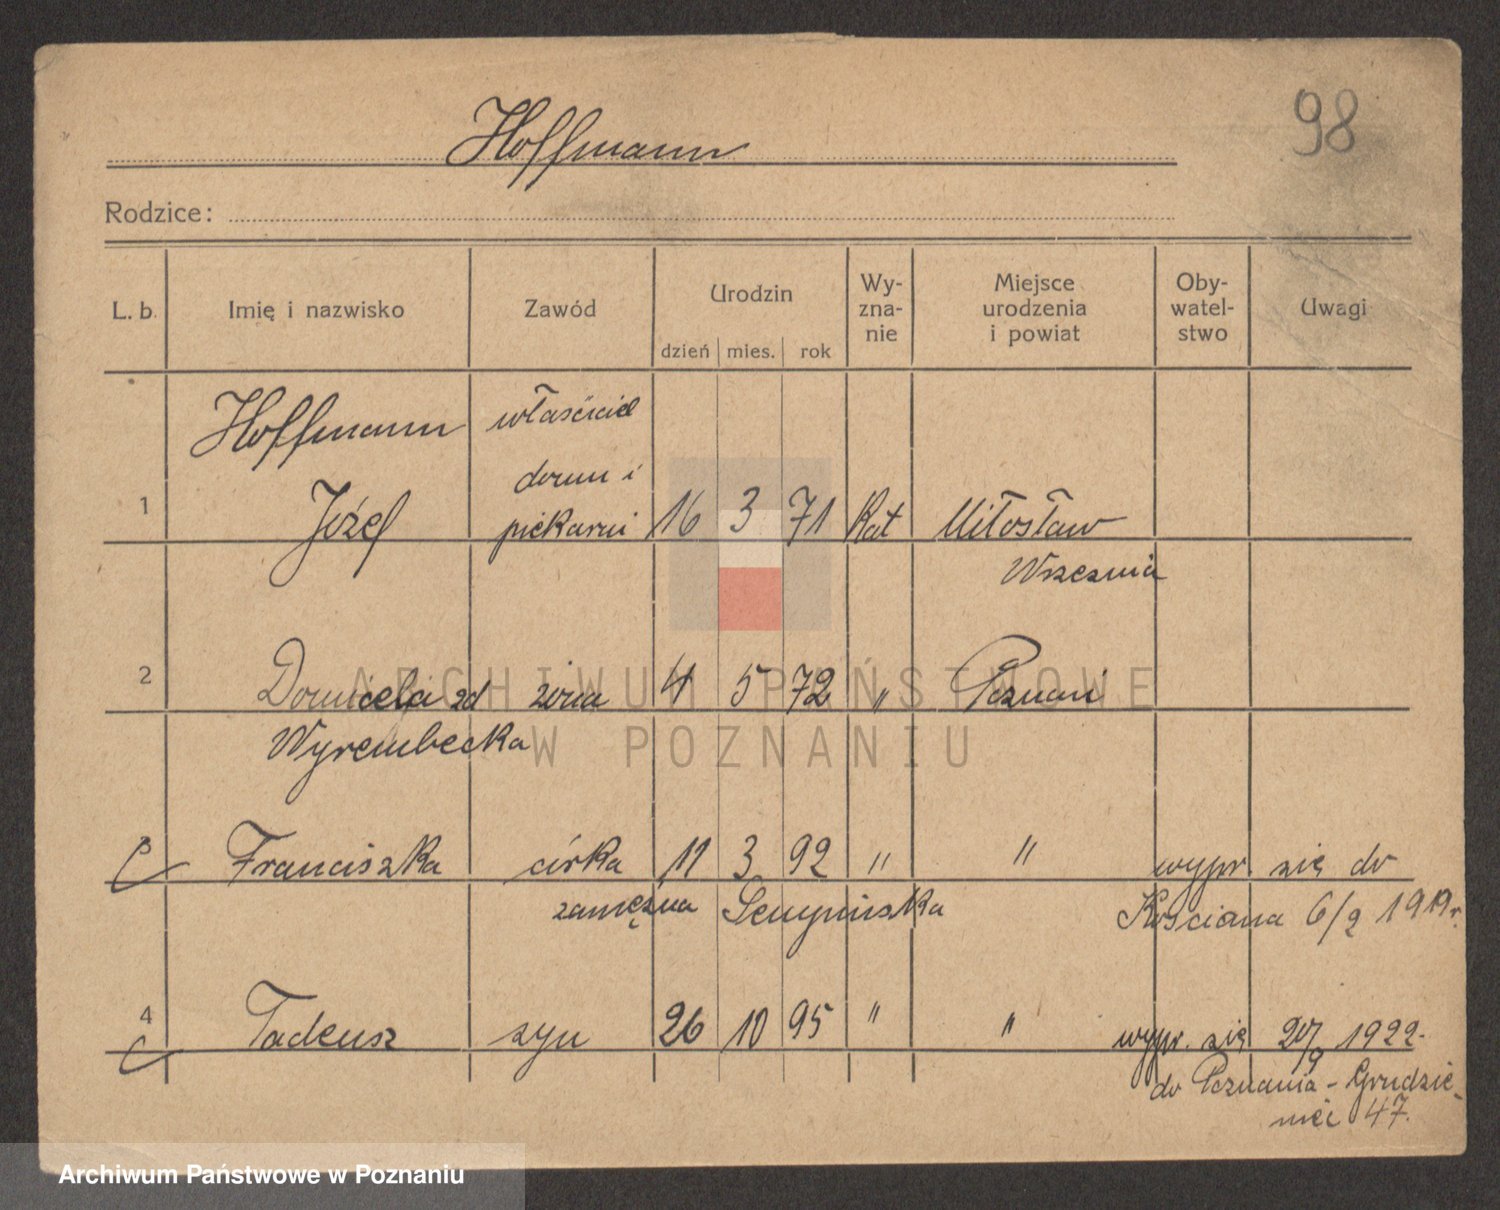 98
Hoffmann
Rodzice:
L. b. Imię i nazwisko Zawód Urodzin dzień mies. rok Wy-zna-nie Miejsce urodzenia i powiat Oby-watel-stwo Uwagi
Hoffmann właściciel
domu i
1 Józef piekarni 16 3 71 Kat Miłosław
Września
2 Domicela zd żona 4 5 72 " Poznań
Wyrembecka
3 Franciszka córka 11 3 92 " " wypr. się do
zamężna Kościana 6/9 1919r.
4 Tadeusz syn 26 10 95 " " wypr. się 20/9 1922.
do Poznania - Grudzie-
niec 47.
ARCHIWUM PAŃSTWOWE
W POZNANIU
Archiwum Państwowe w Poznaniu